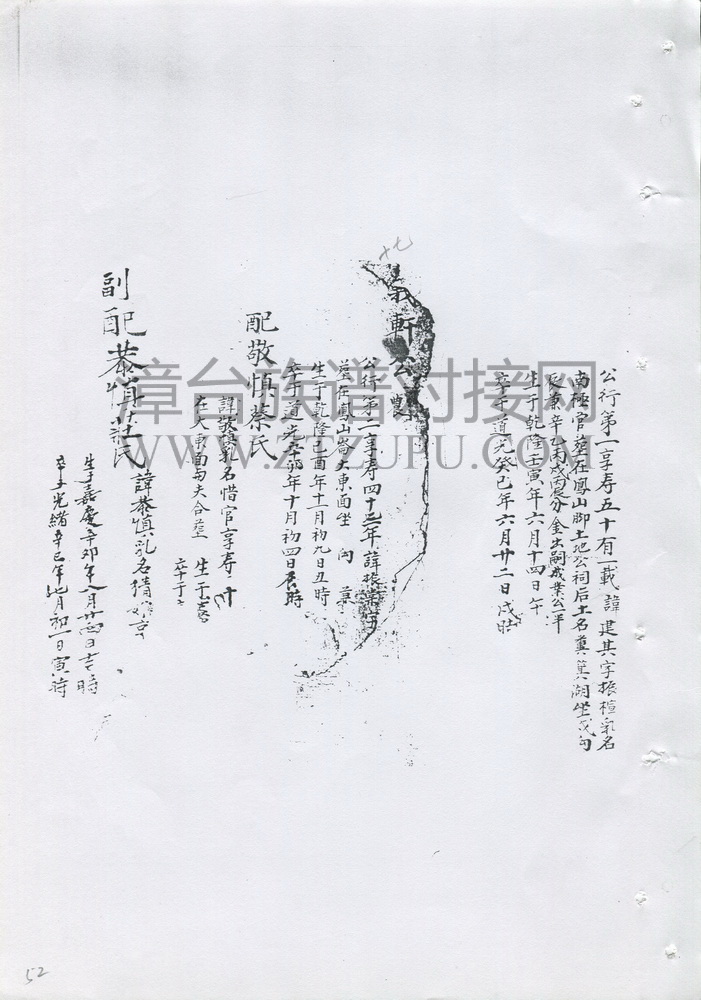 公行第一享寿五十有一載諱建其字振楦乳名
南極官塟在鳳山脚土地公祠后土名糞箕湖坐戌向
辰兼辛乙丙戌丙辰分金出嗣成業公一半
生于乾隆壬寅年六月十四日午
卒于道光癸巳年六月廿二日戌时
十七
軒公
農
公行第二享寿四十三年諱振
塟在鳳山崙大東面坐 向 兼
生于乾隆己酉年十一月初九日丑時
卒于道光辛卯年十月初四日辰時
配敬慎蔡氏
諱敬慎乳名惜官享寿 十
在大東面与夫合塟 生于
卒于
副配恭慎莊氏
諱恭慎乳名
生于嘉慶辛卯年八月廿四日吉時
卒于光緒辛巳年 月初一日寅時
52
漳台族谱对接网
WWW.ZTZUPU.COM